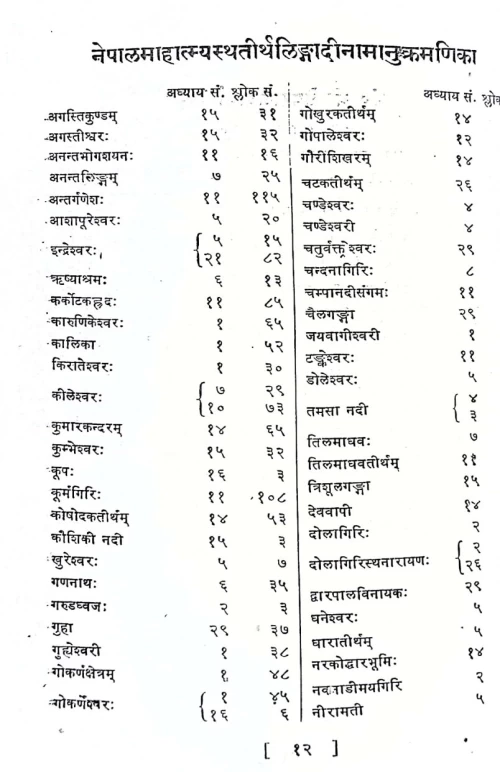 नेपालमाहात्म्यस्थतीर्थलिङ्गादीनामानुक्रमणिका
अध्याय सं. श्लोक सं.
अगस्तिकुण्डम् १५ ३१
अगस्तीश्वरः १५ ३२
अनन्तभोगशयनः ११ १६
अनन्तलिङ्गम् ७ २५
अन्तर्गणेशः ११ ११५
आशापूरेश्वरः ५ २०
इन्द्रेश्वरः { ५ १५
२१ ८२
ऋष्याश्रमः ६ १३
कर्कोटकह्रदः ११ ८५
कारुणिकेश्वरः १ ६५
कालिका १ ५२
किरातेश्वरः १ ३०
कीलेश्वरः { ७ २९
१० ७३
कुमारकन्दरम् १४ ६५
कुम्भेश्वरः १५ ३२
कूपः १६ ३
कूर्मगिरिः ११ १०८
कोषोदकतीर्थम् १४ ५३
कौशिकी नदी १५ ३
खुरेश्वरः ५ ७
गणनाथः ६ ३५
गरुडध्वजः २ ३
गुहा २९ ३७
गुह्येश्वरी १ ३८
गोकर्णक्षेत्रम् १ ४८
गोकर्णेश्वरः { १ ४५
१६ ६
अध्याय सं. श्लो
गोखुरकतीर्थम् १४
गोपालेश्वरः १२
गौरीशिखरम् १४
चटकतीर्थम् २६
चण्डेश्वरः ४
चण्डेश्वरी ४
चतुर्वक्त्रेश्वरः २९
चन्दनागिरिः ८
चम्पानदीसंगमः ११
चैलगङ्गा २९
जयवागीश्वरी १
टङ्केश्वरः ११
डोलेश्वरः ५
तमसा नदी { ४
३
तिलमाधवः ७
तिलमाधवतीर्थम् ११
त्रिशूलगङ्गा १५
देववापी १४
दोलागिरिः २
दोलागिरिस्थनारायणः { २
२६
द्वारपालविनायकः २९
धनेश्वरः ५
धारातीर्थम् ५
नरकोद्धारभूमिः १४
२
नीरामती ५
[ १२ ]